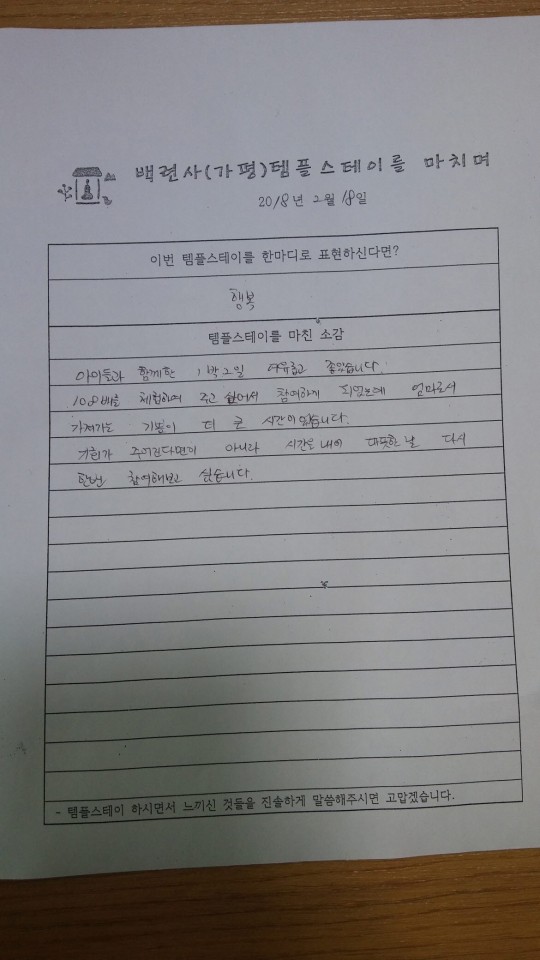 백련사(가평)템플스테이를 마치며
2018년 2월 18일
이번 템플스테이를 한마디로 표현하신다면?
행복
템플스테이를 마친 소감
아이들과 함께한 1박2일 여유롭고 좋았습니다.
108배를 체험하여 주고 싶어서 참여하게 되었는데 엄마로서
가져가는 기쁨이 더 큰 시간이 됐습니다.
기회가 주어진다면이 아니라 시간을 내어 따뜻한 날 다시
한번 참여해보고 싶습니다.
- 템플스테이 하시면서 느끼신 것들을 진솔하게 말씀해주시면 고맙겠습니다.